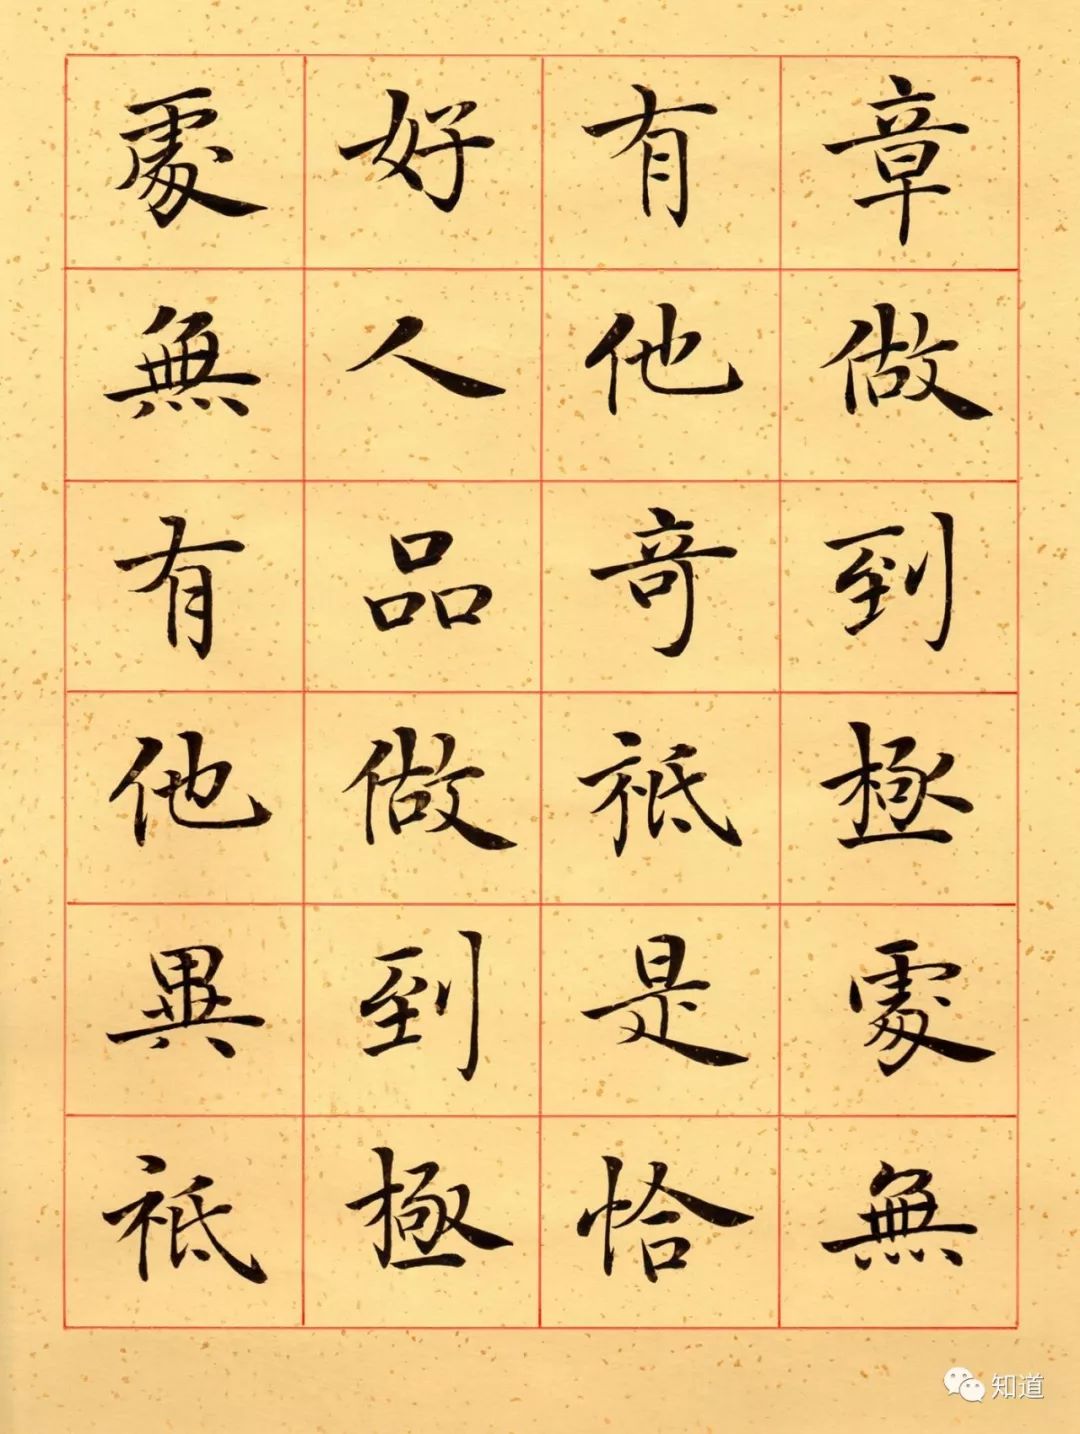 章做到極處無
有他奇祗是恰
好人品做到極
處無有他異祗
知道